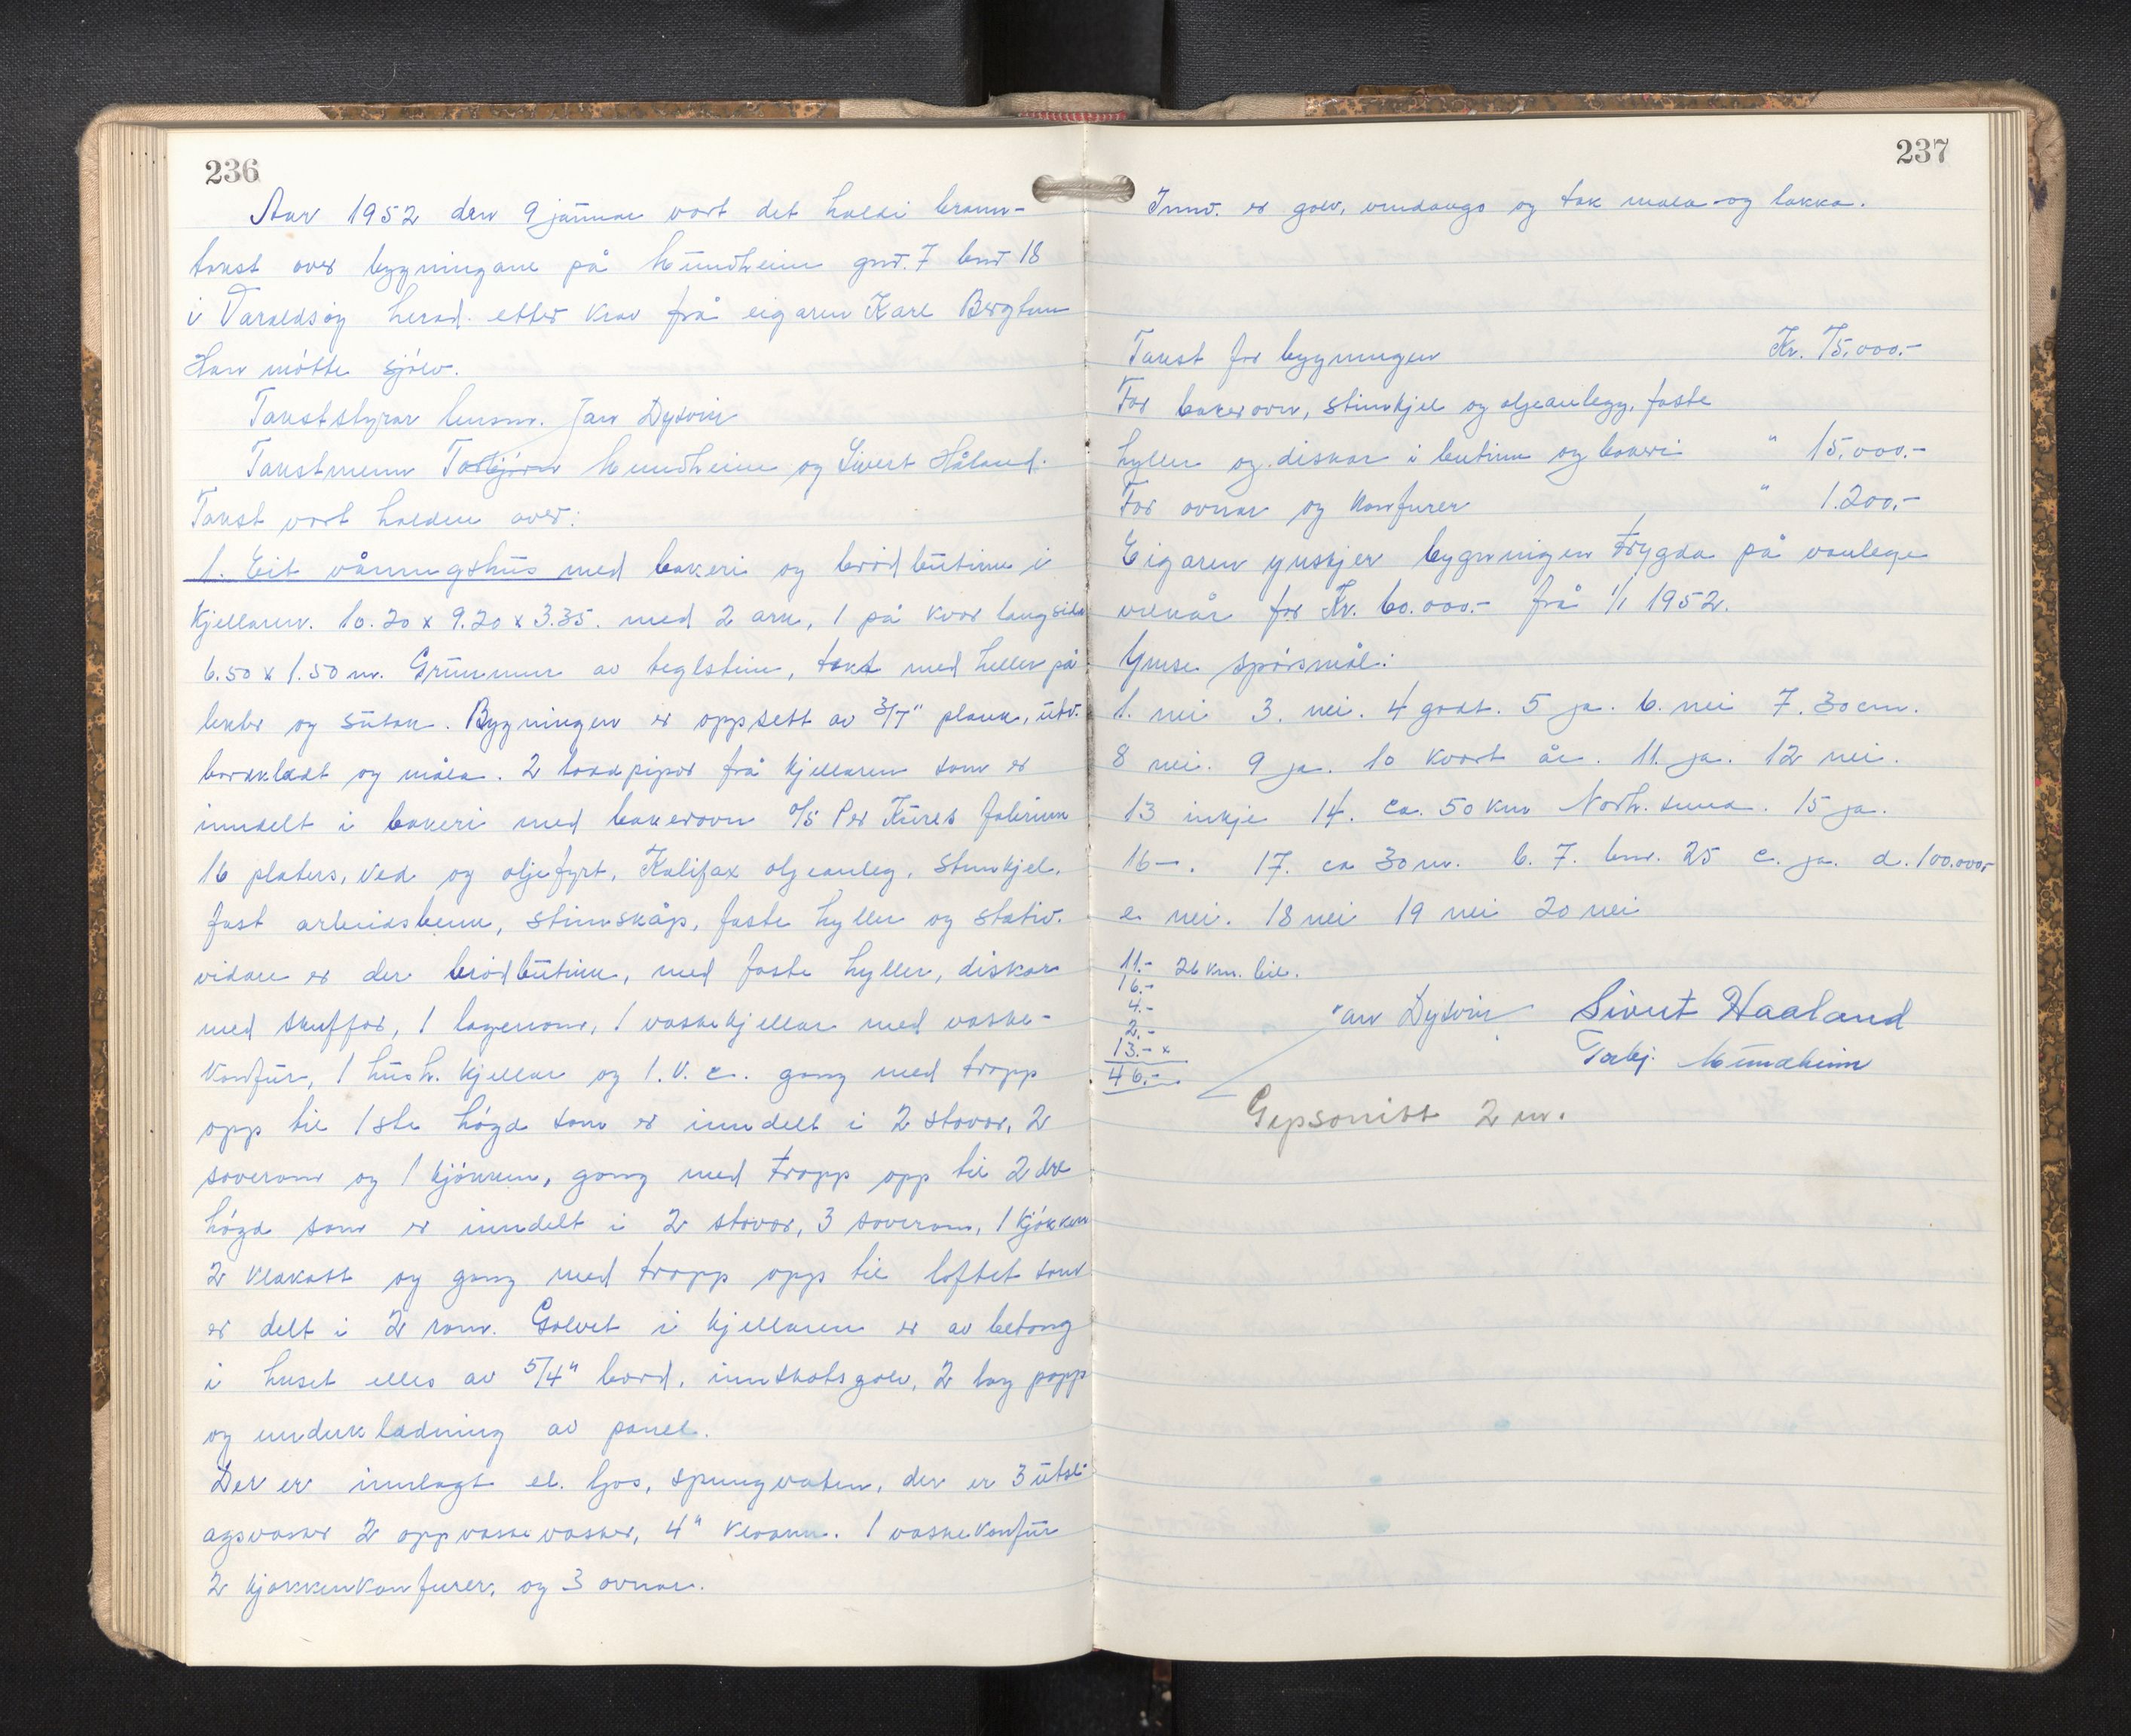 236
Aar 1952 den 9 januar vart det haldi brann-
takst over bygningane på Mundheim gnr. 7 bnr 18
i Varaldsøy herad. etter krav frå eigaren Karl Bergtun
Han møtte sjølv.
Takststyrar lensm. Jan Dysvik
Takstmenn Torbjørn Mundheim og Sivert Håland.
Takst vart halden over:
1. Eit våningshus med bakeri og brødbutikk i
kjellaren. 10.20 x 9.20 x 3.35. med 2 ark, 1 på kvar langside
6.50 x 1.50 m. Grunnmur av teglstein, takt med heller på
lekter og sutak. Bygningen er oppsett av 3/7" plank, utv.
bordkledt og måla. 2 loddpipor frå kjellaren som er
inndelt i bakeri med bakerovn a/s Per Kures fabrikk
16 platers, ved og oljefyrt, Kalifax oljeanleg, stimkjel,
fast arbeidsbenk, stimskåp, faste hyller og stativ.
vidare er der brødbutikk, med faste hyller, diskar
med skuffor, 1 lagerrom, 1 vaskekjellar med vaske-
komfur, 1 hush. kjellar og 1. V. c. gang med tropp
opp til 1ste høgd som er inndelt i 2 stovor, 2
soverom og 1 kjøkken, gang med tropp opp til 2dre
høgd som er inndelt i 2 stovor, 3 soverom, 1 kjøkken
2 klekott og gang med tropp opp til loftet som
er delt i 2 rom. Golvet i kjellaren er av betong
i huset elles av 5/4" bord, innskotsgolv, 2 lag papp
og underkledning av panel.
Der er innlagt el. ljos, springvaten, der er 3 utsl-
agsvasker 2 oppvaskevasker, 4" kloakk. 1 vaskekomfur
2 kjøkkenkomfurer, og 3 ovnar.
237
Innv. er golv, vendaugo og tak mala og lakka.
Takst for bygningen Kr. 75.000.-
For bakerovn, stimkjel og oljeanlegg, faste
hyller og diskar i butikk og bakeri " 15.000.-
For ovnar og komfurer " 1.200.-
Eigaren ynskjer bygningen trygda på vanlege
vilkår for Kr. 60.000.- frå 1/1 1952.
Ymse spørsmål:
1. nei 3. nei. 4 godt. 5 ja. 6. nei 7. 30 cm.
8 nei. 9 ja. 10 kvart år. 11. ja. 12 nei.
13 inkje 14. ca. 50 km Norh. sund. 15 ja.
16 -. 17. ca 30 m. b. 7. bnr. 25 c. ja. d. 100.000,-
e. nei. 18 nei 19 nei 20 nei
11.- 26 km. bil.
16.-
4.-
2.-
13.- x
46.-
Jan Dysvik Sivert Haaland
Torbj. Mundheim
Gipsonitt 2 m.